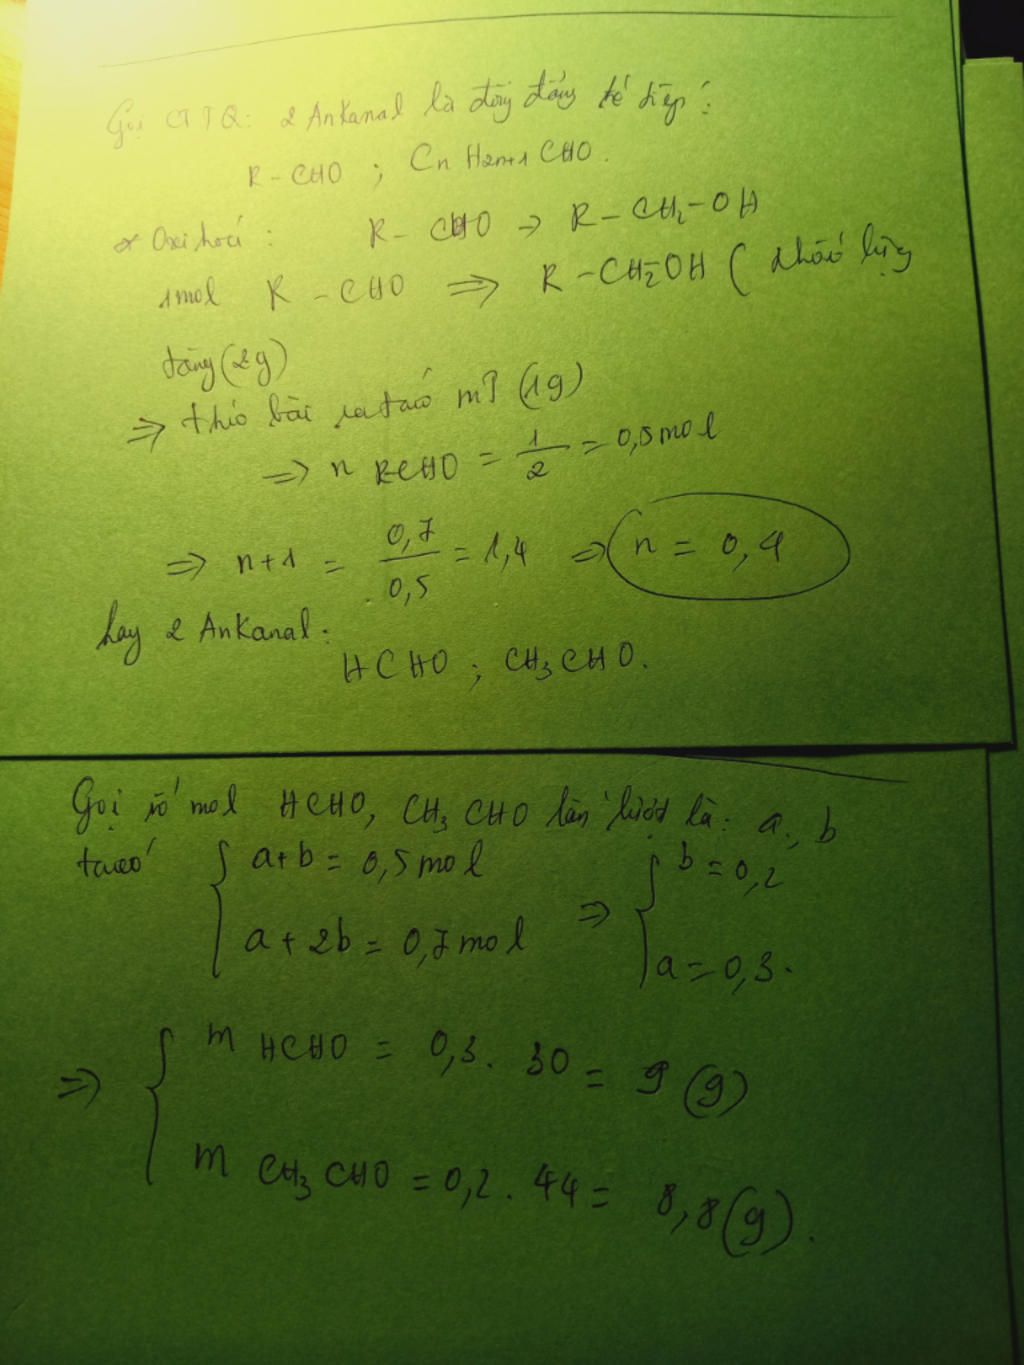 Gọi CTTQ: 2 Ankanal là đồng đẳng kế tiếp:
R-CHO ; CnH2n+1 CHO.
* Oxi hoá : R - CHO → R - CH2 - OH
1mol R - CHO ⇒ R - CH2-OH ( khối lượng
tăng (2g)
⇒ theo bài ra ta có m↑ (1g)
⇒ n RCHO = 1/2 = 0,5 mol
⇒ n+1 = 0,7/0,5 = 1,4 ⇒ n = 0,4
hay 2 Ankanal:
HCHO ; CH3 CHO.
Gọi số mol HCHO, CH3 CHO lần lượt là: a, b
ta có { a+b = 0,5 mol ⇒ { b = 0,2
a + 2b = 0,7 mol a = 0,3.
⇒ { m HCHO = 0,3. 30 = 9 (g)
m CH3 CHO = 0,2 . 44 = 8,8 (g).